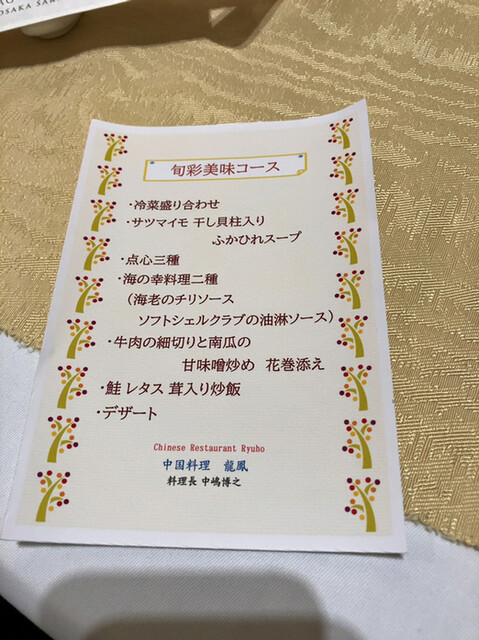 OSAKA
旬彩美味コース
・冷菜盛り合わせ
・サツマイモ 干し貝柱入り
ふかひれスープ
・点心三種
・海の幸料理二種
（海老のチリソース
ソフトシェルクラブの油淋ソース）
・牛肉の細切りと南瓜の
甘味噌炒め 花巻添え
・鮭 レタス 茸入り炒飯
・デザート
Chinese Restaurant Ryuho
中国料理 龍鳳
料理長 中嶋博之